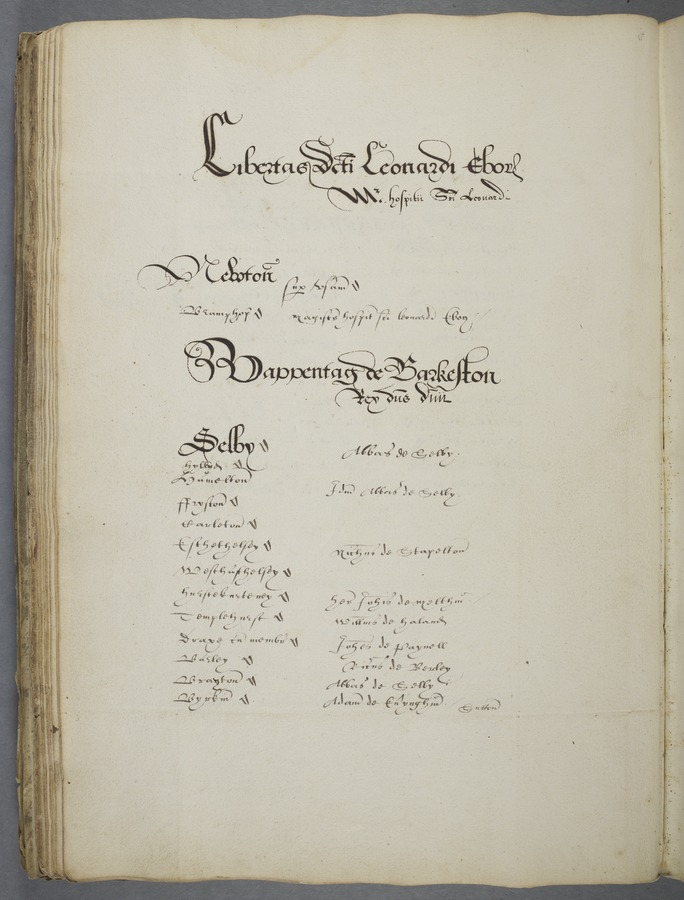 Libertas Scti Leonardi Ebor
Mr. hospitii Sti Leonardi
Newton
sup
Bramhop Magistr hospit sci leonardi Ebor
Wappentag de Barkeston
Rex dns dnn
Selby Abbas de Selby.
Hamelton Idm Abbas de Selby
ffryston
Carleton
Esthethelsey Richus de Stapelton
Westhathelsey
hurstekurteney her Johis de
Templehurst Willms de
Draxe cu membr Johes de Paynell
Burley de Berley
Brayton Abbas de Selby
Byrkin Adam de Sutton